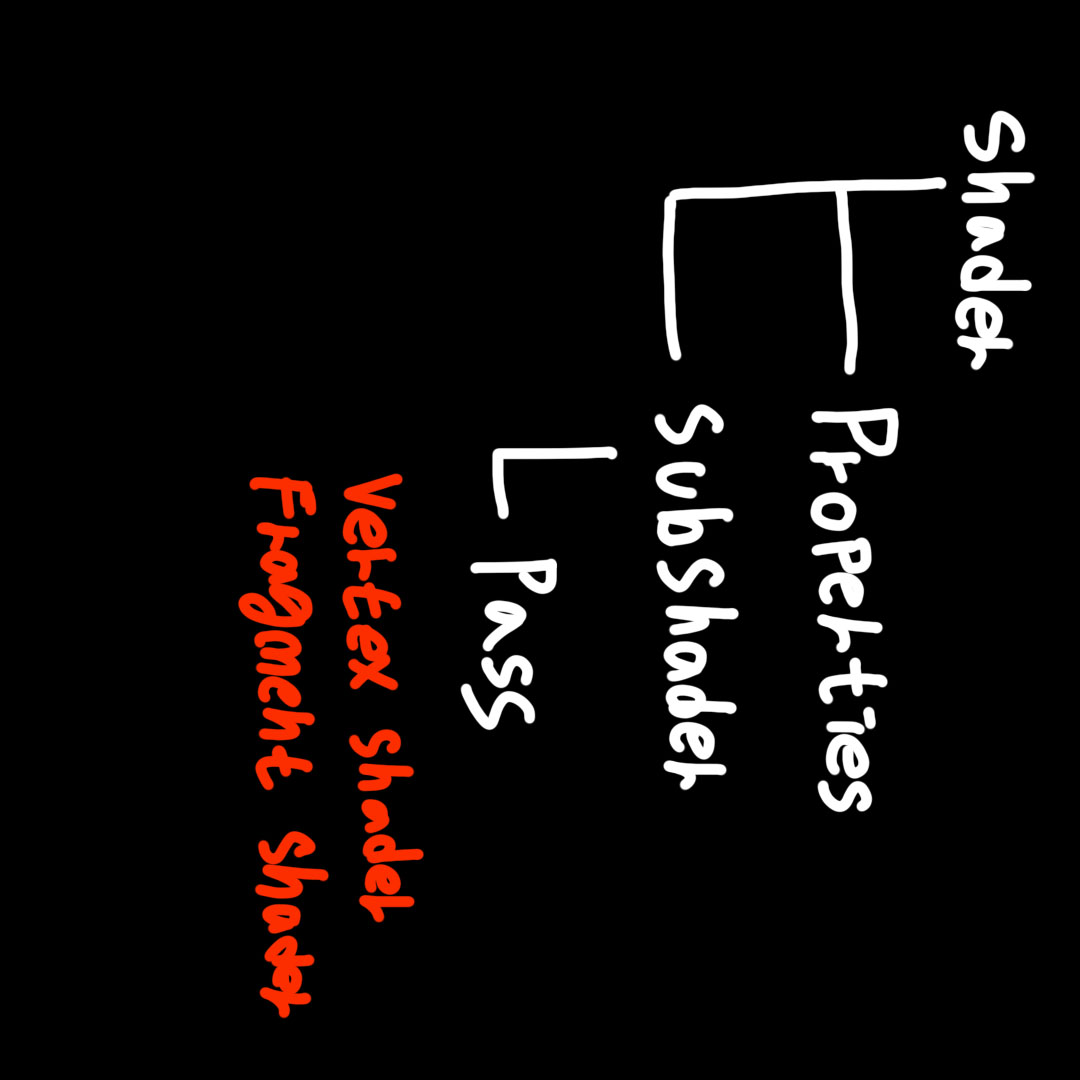 Shader
Properties
SubShader
Pass
Vertex shader
Fragment shader